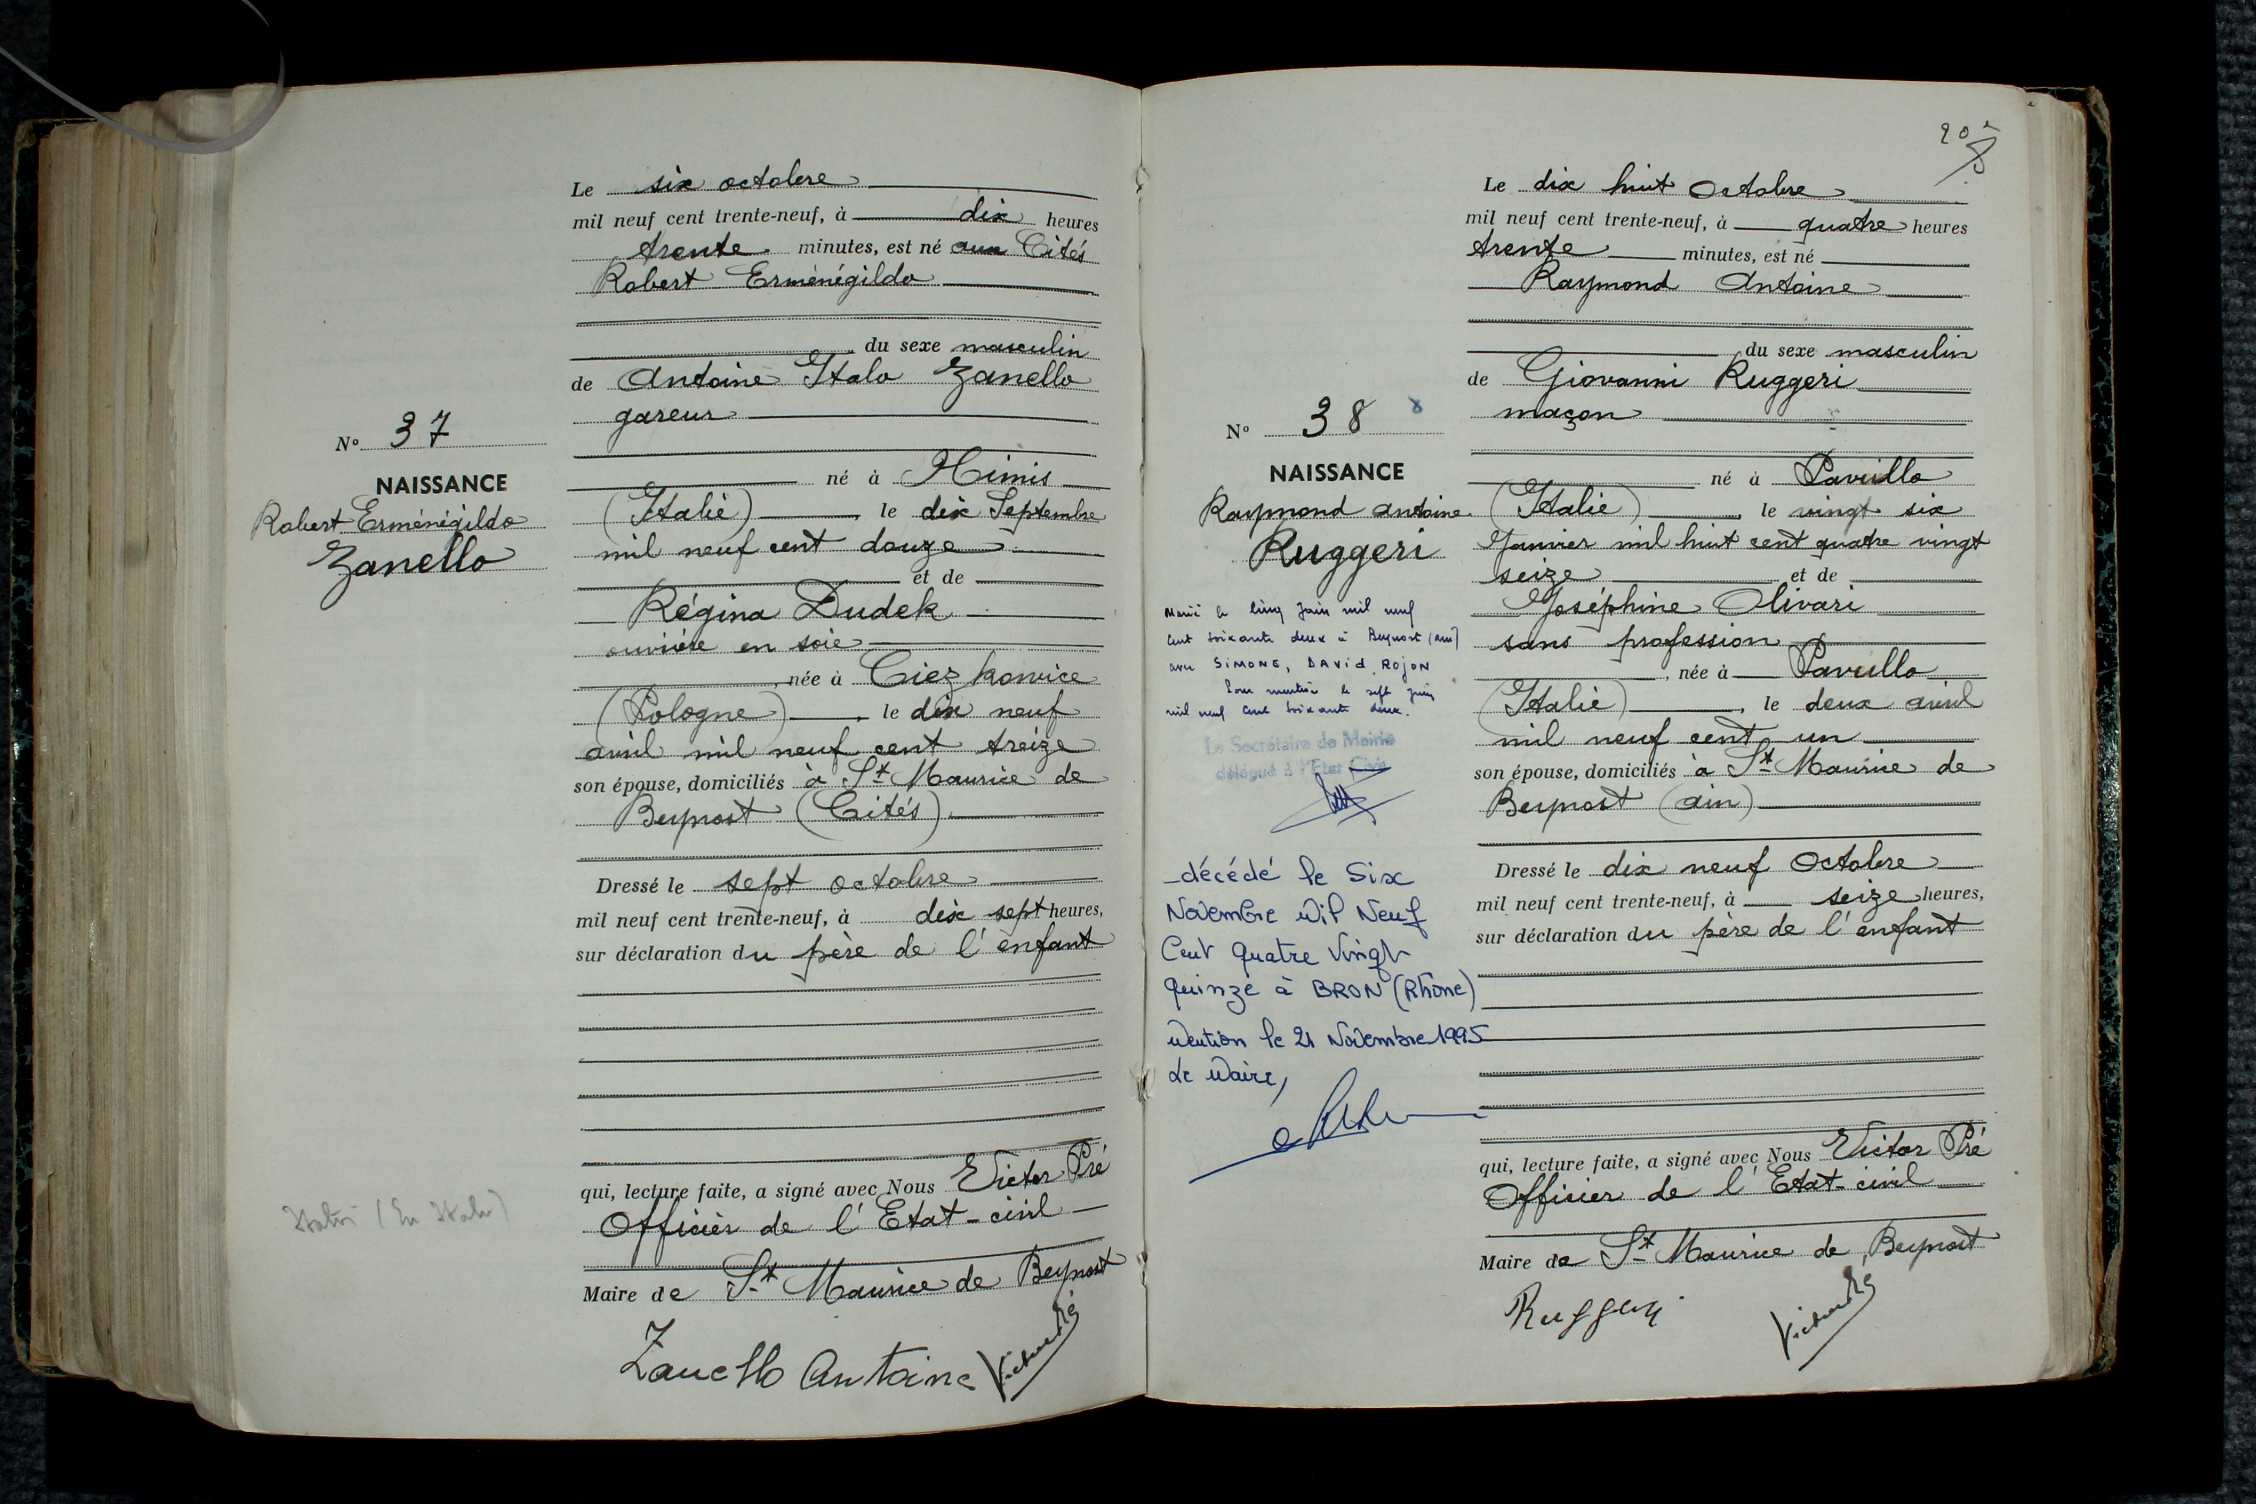 Le six octobre
mil neuf cent trente-neuf, à dix heures
trente minutes, est né aux Cités
Robert Erménégildo
du sexe masculin
de Antoine Italo Zanello
gareur
né à Nimis
(Italie), le dix Septembre
mil neuf cent douze
et de
Régina Dudek
ouvrière en soie
, née à Ciezkowice
(Pologne), le dix neuf
avril mil neuf cent treize
son épouse, domiciliés à St Maurice de
Beynost (Cités)
Dressé le sept octobre
mil neuf cent trente-neuf, à dix sept heures,
sur déclaration du père de l'enfant
qui, lecture faite, a signé avec Nous Victor Pré
Officier de l'Etat-civil
Maire de St Maurice de Beynost
Zanello Antoine Victor Pré
N° 37
NAISSANCE
Robert Erménégildo
Zanello
20
Le dix huit Octobre
mil neuf cent trente-neuf, à quatre heures
trente minutes, est né
Raymond Antoine
du sexe masculin
de Giovanni Ruggeri
maçon
né à Pavullo
(Italie), le vingt six
Janvier mil huit cent quatre vingt
seize et de
Joséphine Olivari
sans profession
, née à Pavullo
(Italie), le deux avril
mil neuf cent un
son épouse, domiciliés à St Maurice de
Beynost (ain)
Dressé le dix neuf Octobre
mil neuf cent trente-neuf, à seize heures,
sur déclaration du père de l'enfant
qui, lecture faite, a signé avec Nous Victor Pré
Officier de l'Etat-civil
Maire de St Maurice de Beynost
Ruggeri Victor Pré
N° 38 8
NAISSANCE
Raymond Antoine
Ruggeri
Marié le cinq juin mil neuf
cent soixante deux à Beynost (ain)
avec SIMONE, DAVID ROJON
Pour mention le sept juin
mil neuf cent soixante deux.
Le Secrétaire de Mairie
délégué à l'Etat Civil
décédé le Six
Novembre Mil Neuf
Cent Quatre Vingt
Quinze à BRON (Rhône)
Mention le 21 Novembre 1995
Le Maire,